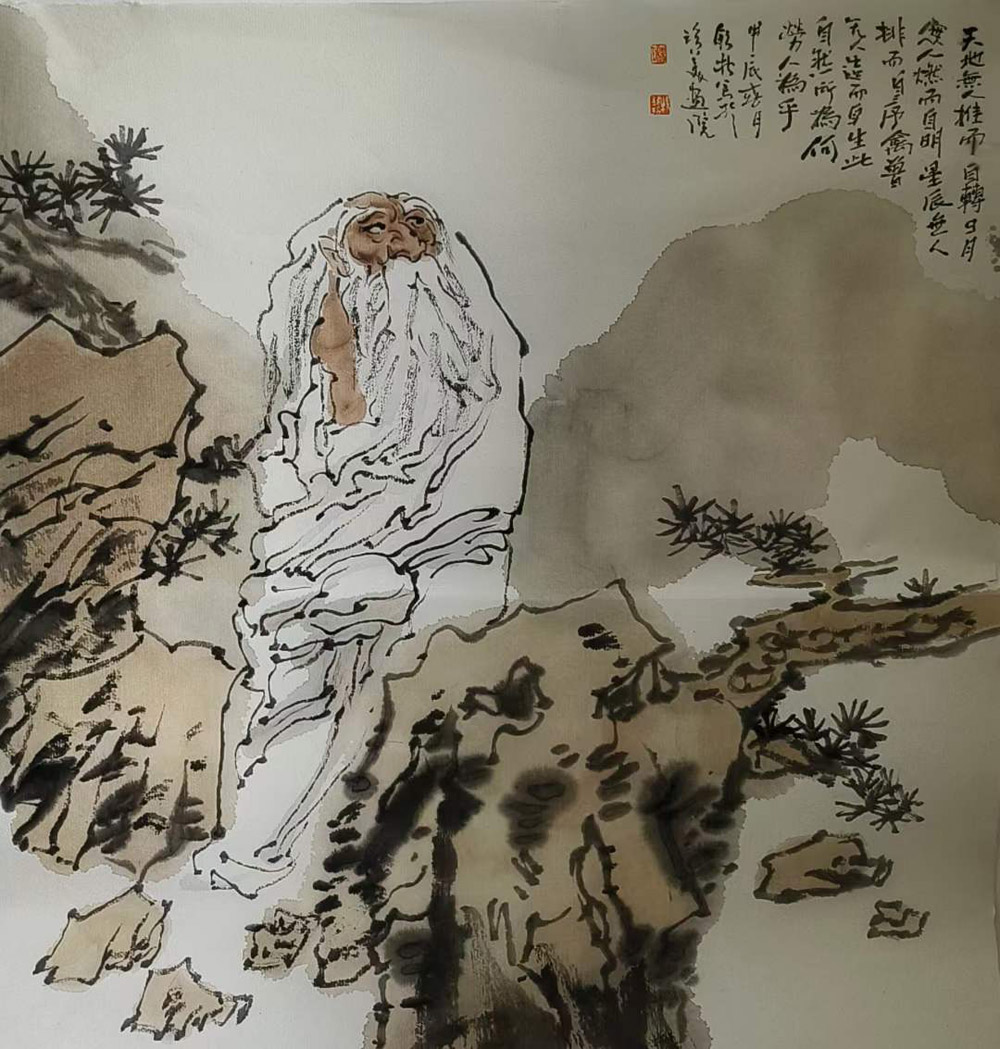 天地無人推而自轉日月
無人燃而自明星辰無人
排而自序禽獸
无人造而自生此
自然所為何
勞人為乎
甲辰月
寫於
畫院